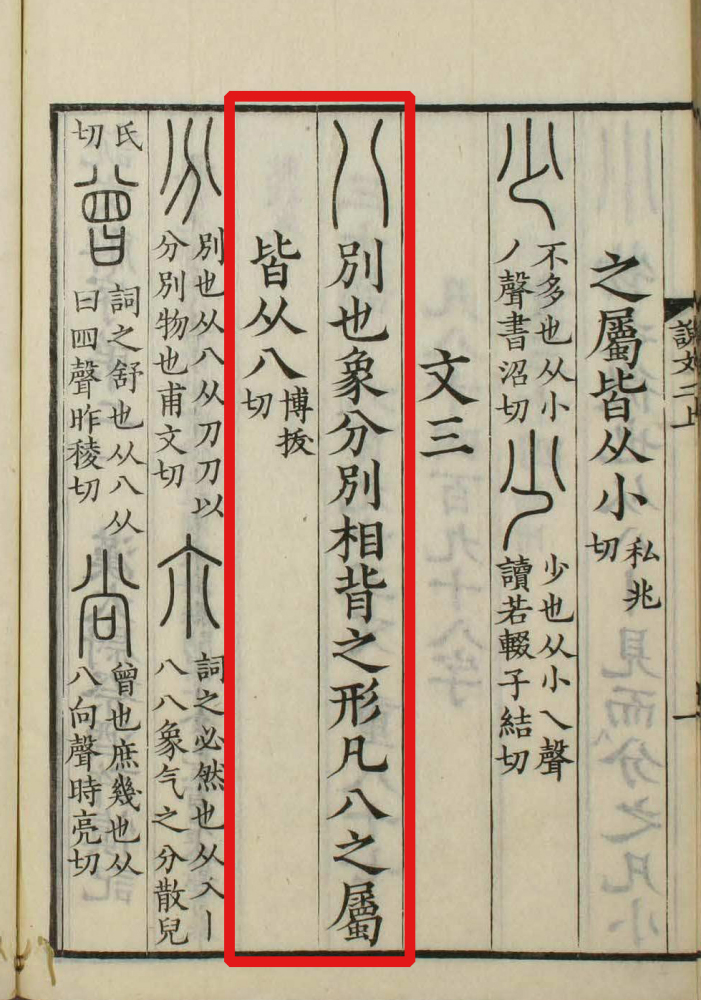 之屬皆从小私兆切
少不多也从小丿聲書沼切𡮐少也从小乀聲讀若輟子結切
文三
八別也象分別相背之形凡八之屬
皆从八博拔切
分別也从八从刀刀以分別物也甫文切𡭗詞之必然也从入丨八八象气之分散皃
氏切曾詞之舒也从八从曰𡆧聲昨稜切尚曾也庶幾也从八向聲時亮切
說文二上
一